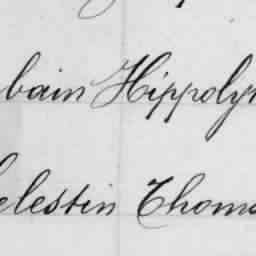 bain Hippoly
elestin Thoma